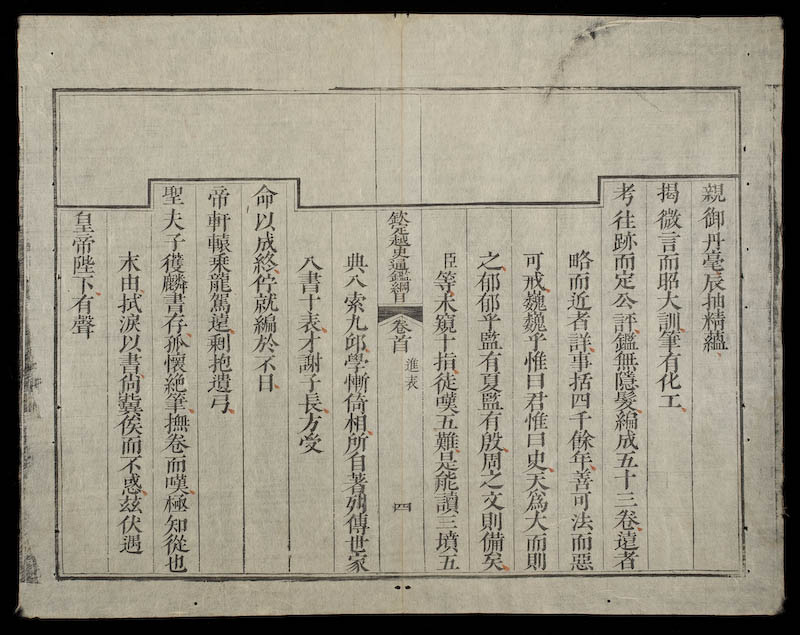 親御丹毫辰抽精蘊
揭微言而昭大訓筆有化工
考往跡而定公評鑑無隱髮編成五十三卷遠者
略而近者詳事括四千餘年善可法而惡
可戒巍巍乎惟曰君惟曰史天爲大而則
之郁郁乎監有夏監有殷周之文則備矣
臣等木窺十指徒嘆五難是能讀三墳五
欽定越史通鑑綱目 卷首 進表 四
典八索九邱學慚倚相所自著列傳世家
八書十表才謝子長方受
命以成終佇就編於不日
帝軒轅乘龍駕遠剩抱遺弓
聖夫子獲麟書存孤懷絶筆撫卷而嘆極知從也
末由拭淚以書尙冀俟而不惑茲伏遇
皇帝陛下有聲